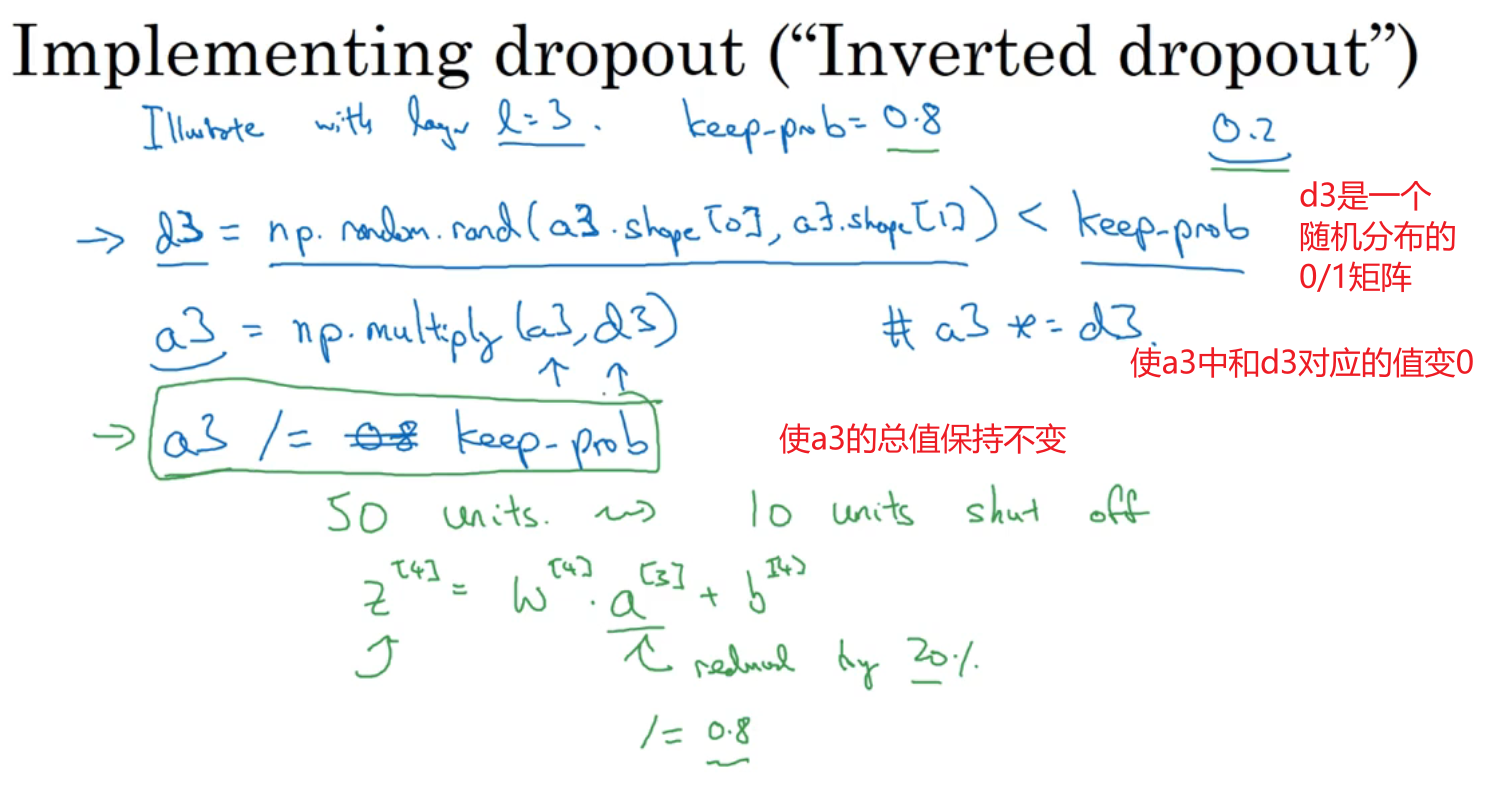 Implementing dropout (“Inverted dropout”)
Illustrate with layer l=3. keep-prob= 0.8 0.2
→ d3 = np.random.rand(a3.shape[0], a3.shape[1]) < keep-prob
d3是一个
随机分布的
0/1矩阵
a3 = np.multiply(a3, d3) # a3 *= d3.
使a3中和d3对应的值变0
→ a3 /= 0.8 keep-prob
使a3的总值保持不变
50 units. ⇝ 10 units shut off
z^[4] = w^[4] · a^[3] + b^[4]
reduced by 20%.
/= 0.8